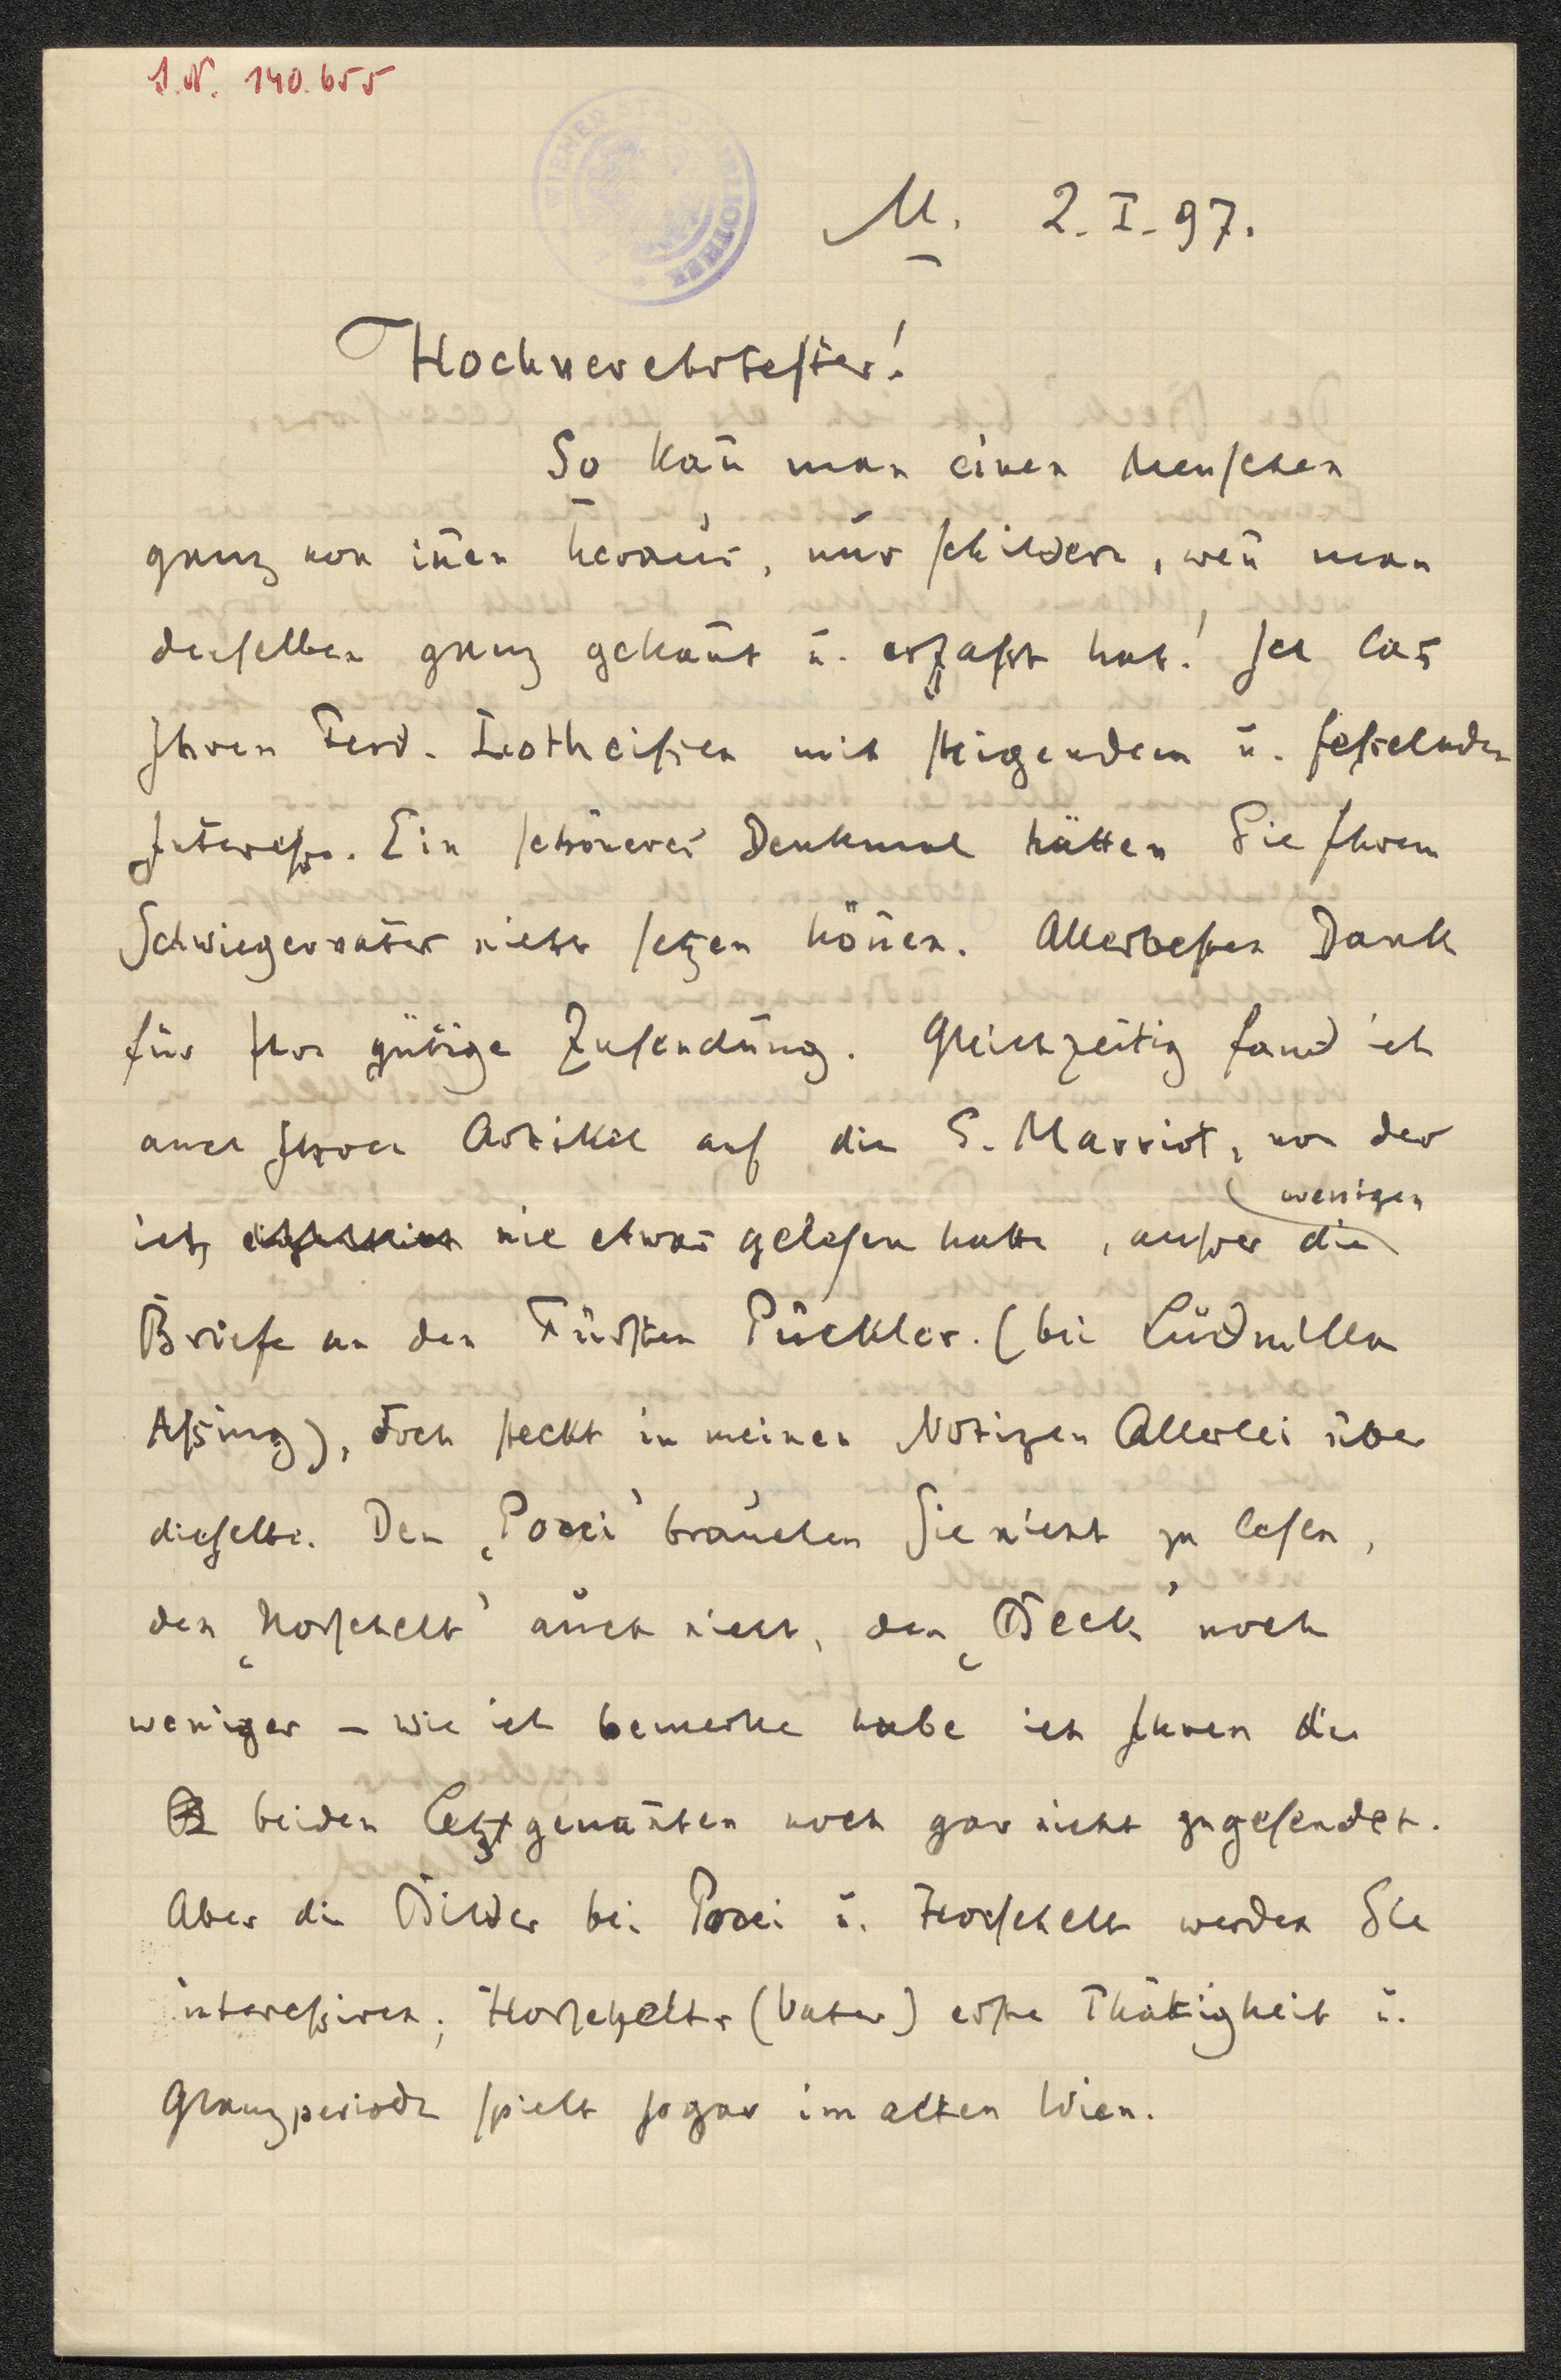 I.N. 140.655
WIENER STADTBIBLIOTHEK
M. 2. I. 97.
Hochverehrtester!
So kan̄ man einen Menschen
ganz von in̄en heraus, nur schildern, wen̄ man
denselben ganz gekan̄t u. erfaßt hat! Ich las
Ihren Ferd. Lotheißen mit steigendem u. fesselnden
Interesse. Ein schöneres Denkmal hätten Sie Ihrem
Schwiegervater nicht setzen kön̄en. Allerbesten Dank
für Ihre gütige Zusendung. Gleichzeitig fand ich
auch Ihren Artikel auf die E. Marriot, von der
ich nie etwas gelesen hatte, außer die wenigen
Briefe an den Fürsten Pückler. (bei Ludmilla
Assing), doch steckt in meinen Notizen Allerlei über
dieselbe. Den ‚Pocci' brauchen Sie nicht zu lesen,
den ‚Horschelt' auch nicht, den ‚Beck' noch
weniger – wie ich bemerke habe ich Ihnen die
beiden letztgenan̄ten noch gar nicht zugesendet.
Aber die Bilder bei Pocci u. Horschelt werden Sie
interessiren; Horschelts (Vater) erste Thätigkeit u.
Glanzperiode spielt sogar im alten Wien.